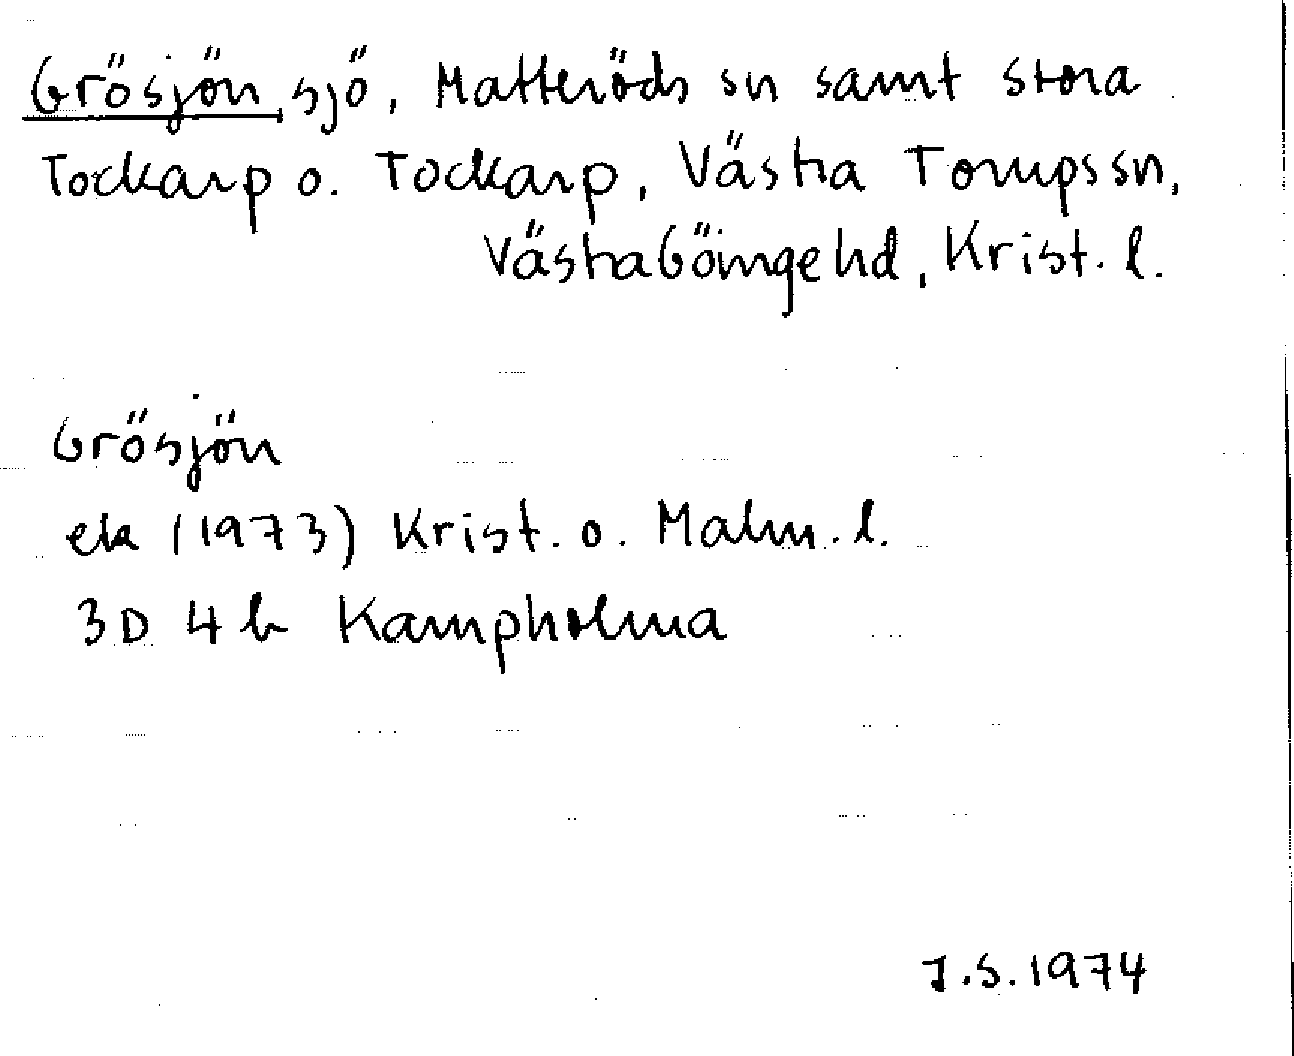 Grösjön, sjö, Matteröds sn samt Stora
Tockarp o. Tockarp, Västra Torups sn,
Västra Göinge hd, Krist. l.
Grösjön
ek (1973) Krist. o. Malm. l.
3D 4b Kampholma
J.S. 1974